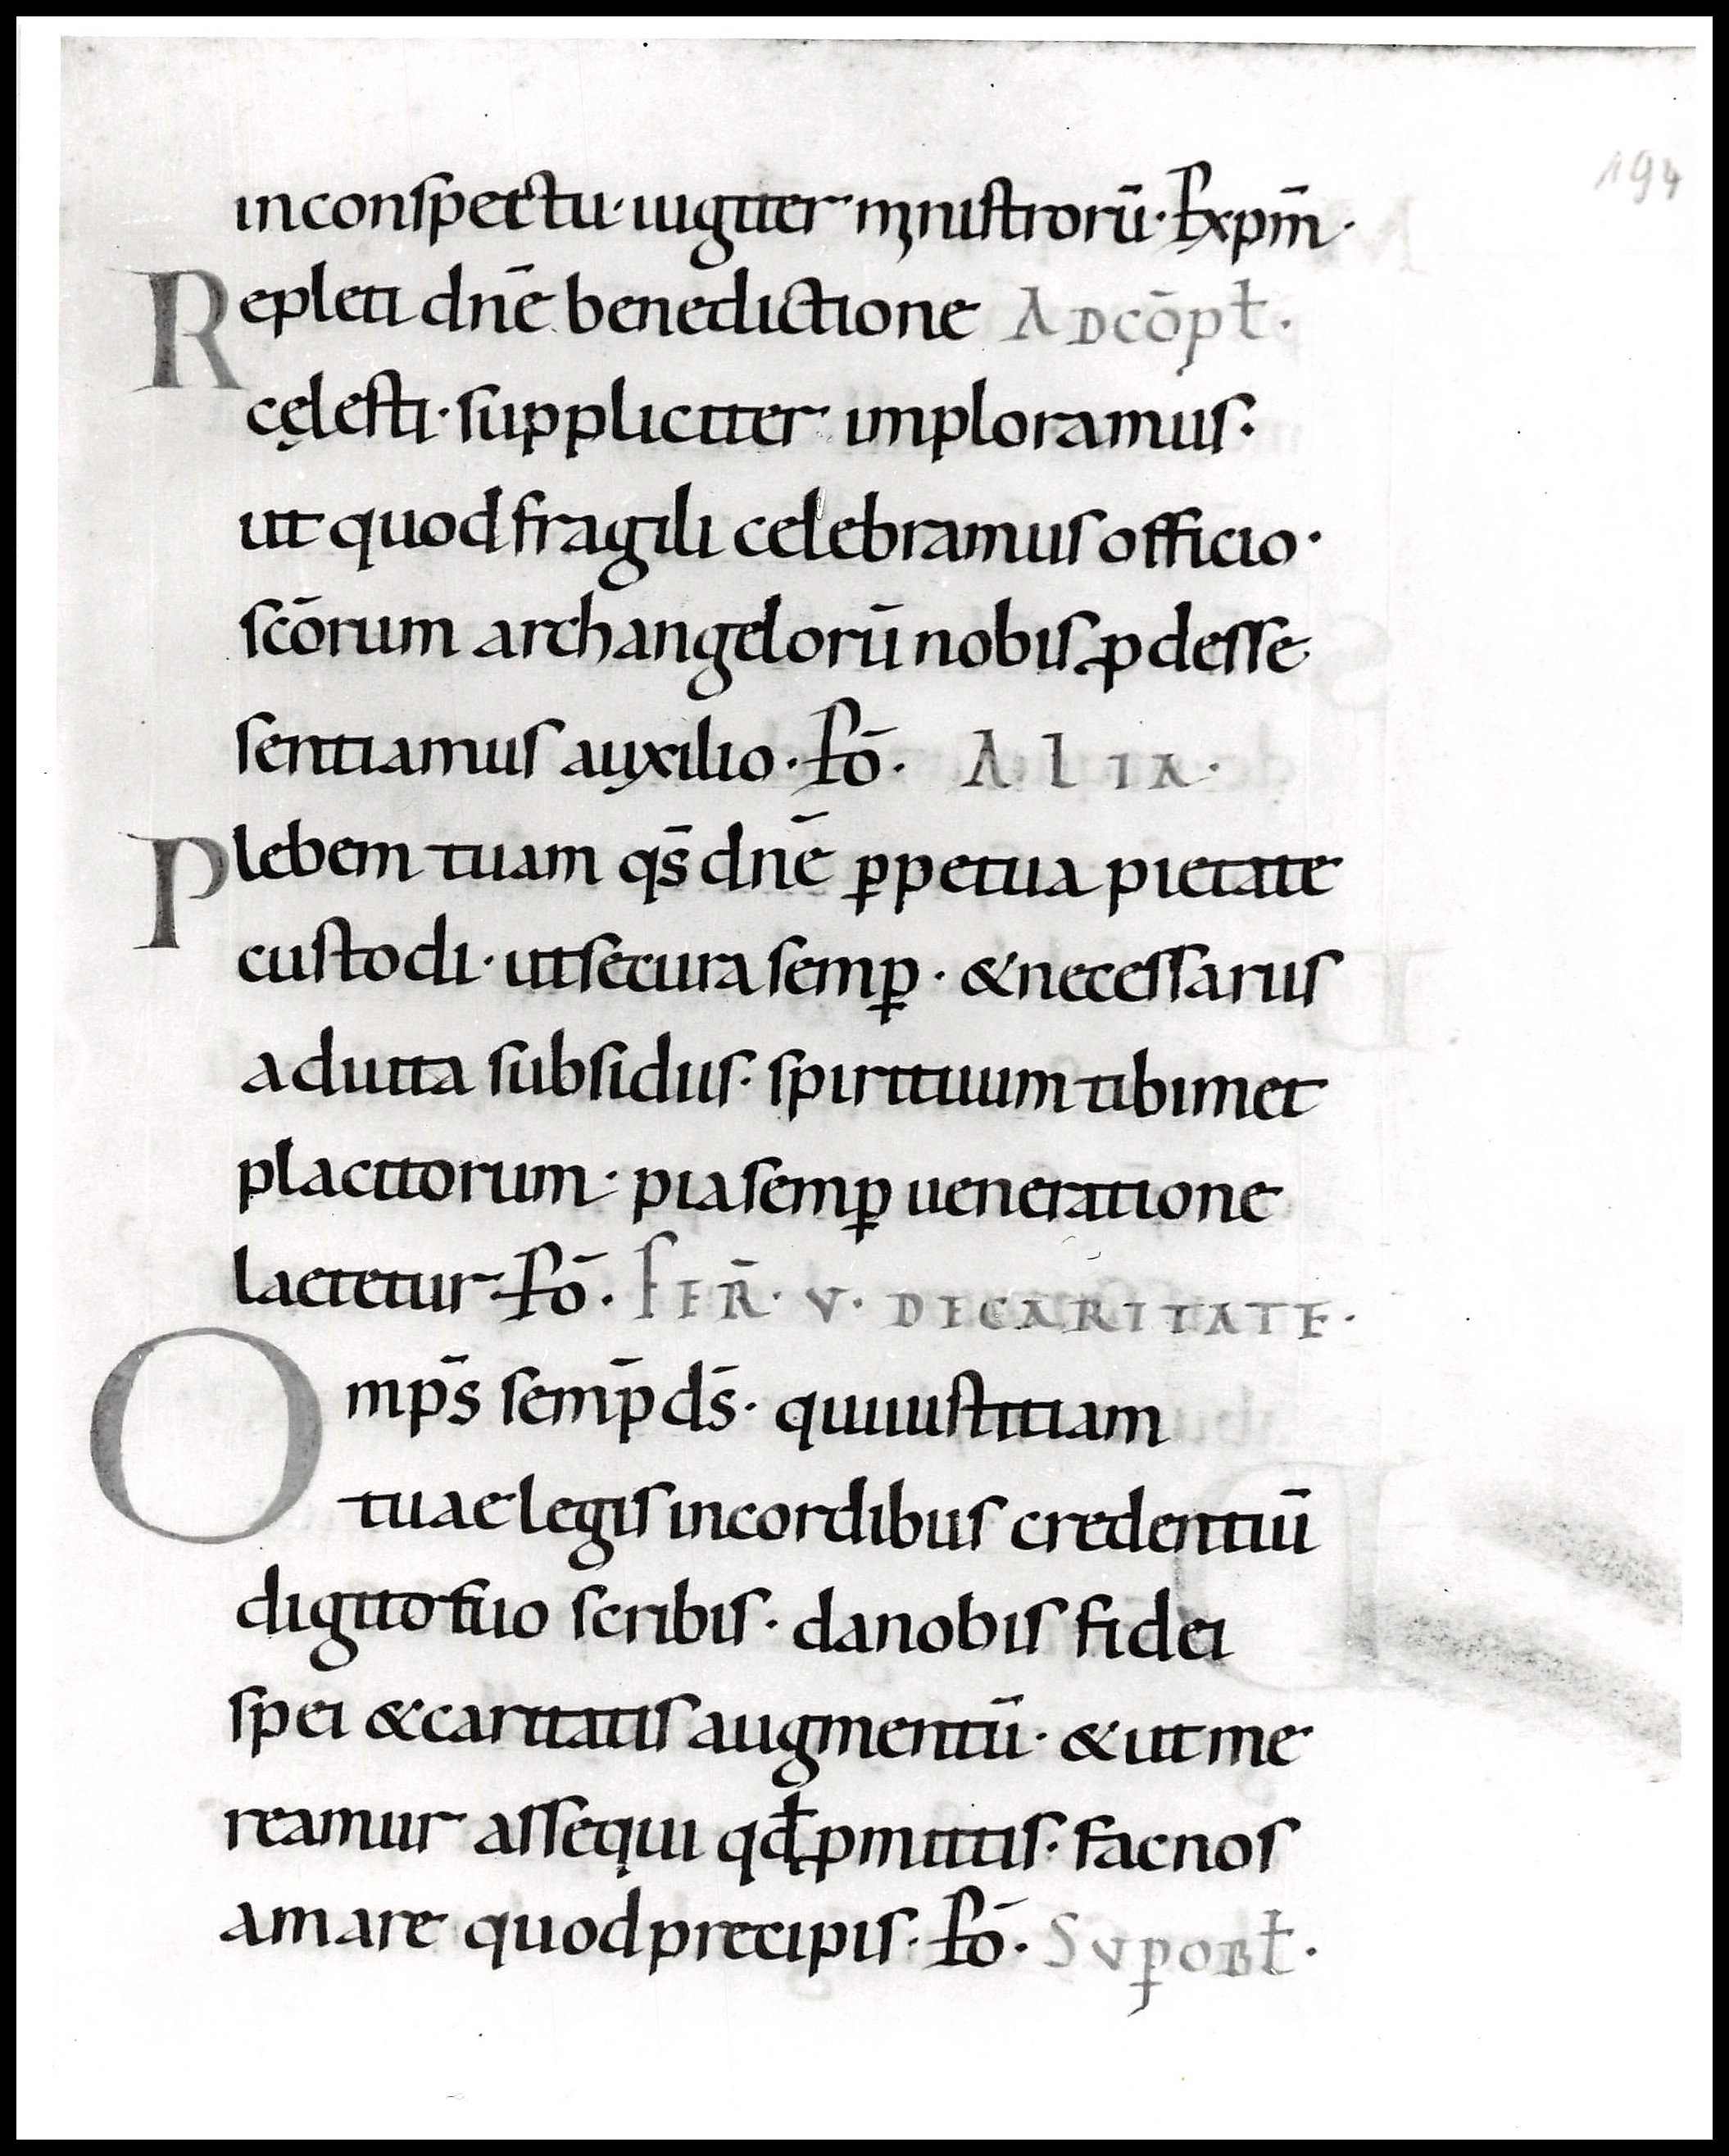 194
inconspectu· iugiter ministrorū· P̶ xp̄m·
Repleti dn̄e benedictione ADCŌPŁ·
cęlesti· suppliciter imploramus·
ut quod fragili celebramus officio·
sc̄orum archangelorū nobis ꝓdesse
sentiamus auxilio· P̶ ō· ALIA·
Plebem tuam qs̄ dn̄e ꝑpetua pietate
custodi· utsecura semꝑ· &necessariis
adiuta subsidiis· spirituum tibimet
placitorum· piasemꝑ ueneratione
laetetur· P̶ ō· FER̄· V· DECARITATE·
Omp̄s semp̄ ds̄· quiiustitiam
tuae legis incordibus credentiū
digito tuo scribis· danobis fidei
spei &caritatis augmentū· &utme
reamur assequi qđ ꝓmittis· facnos
amare quodprecipis· P̶ ō· SUPOBŁ·